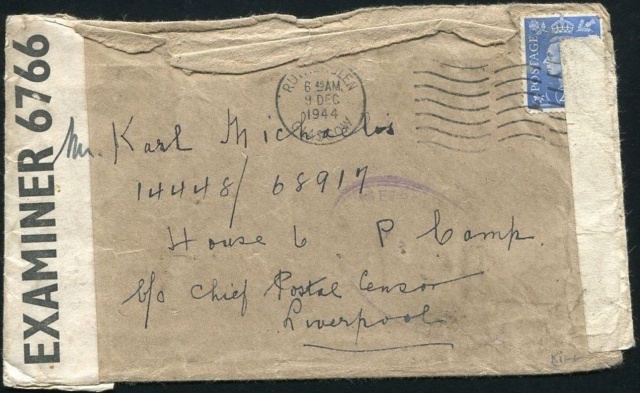 EXAMINER 6766
POSTAGE
6 45 AM
9 DEC
1944
GLASGOW
Mr. Karl Michaelis
14448/68917
House 6 P Camp.
c/o Chief Postal Censor
Liverpool